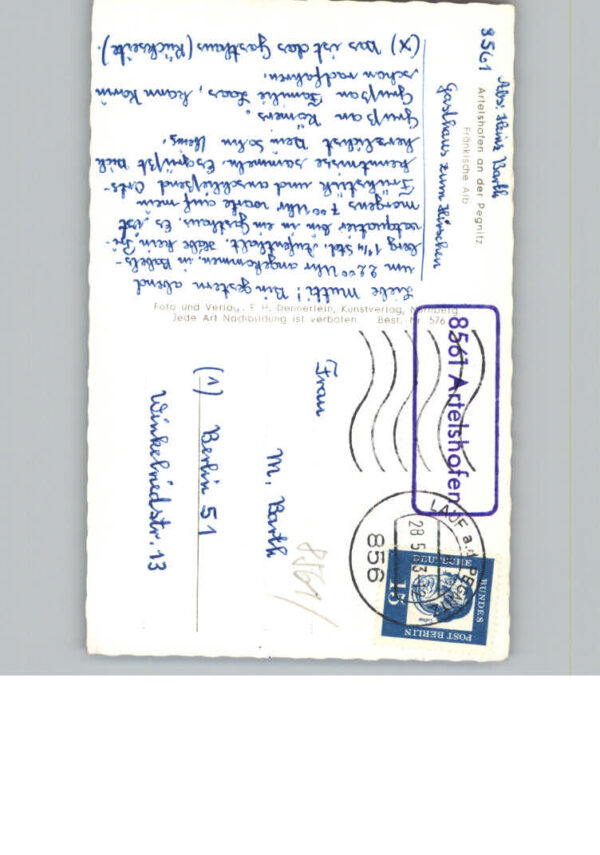 Abs. Heinz Barth
8561 Artelshofen an der Pegnitz
Fränkische Alb
Gasthaus zum Hirschen
Liebe Mutti! Bin gestern abend
um 22⁰⁰ Uhr angekommen, in Bebels-
berg 1¼ Std. Aufenthalt. Habe kein Pri-
vatquartier bin in ein Gasthaus. Es ist
morgens 7⁰⁰ Uhr warte auf mein
Frühstück und anschließend Orts-
kenntnisse sammeln. Es grüßt Dich
herzlichst Dein Sohn Heinz.
Gruß an Römers.
Gruß an Familie Haas, kann Karin
schon radfahren.
(X) Das ist das Gasthaus (Rückseite).
Foto und Verlag: E. H. Dennerlein, Kunstverlag, Nürnberg
Jede Art Nachbildung ist verboten. Best. Nr. 576
8561 Artelshofen
LAUF a.d. PEGNITZ
28.5.63
856
DEUTSCHE
BUNDES
POST BERLIN
15
Frau
M. Barth
(1) Berlin 51
Winkelriedstr. 13
8561/